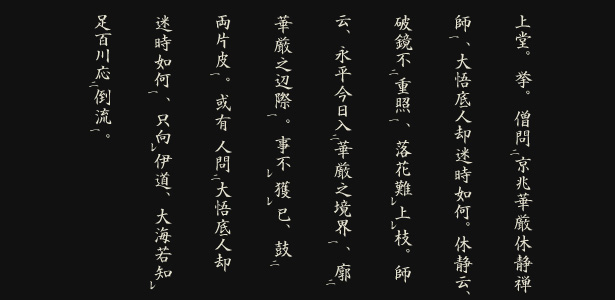 上堂。挙。僧問二京兆華厳休静禅
師一、大悟底人却迷時如何。休静云、
破鏡不二重照一、落花難レ上レ枝。師
云、永平今日入二華厳之境界一、廓二
華厳之辺際一。事不レ獲レ已、鼓二
両片皮一。或有人問二大悟底人却
迷時如何一、只向レ伊道、大海若知レ
足百川応二倒流一。